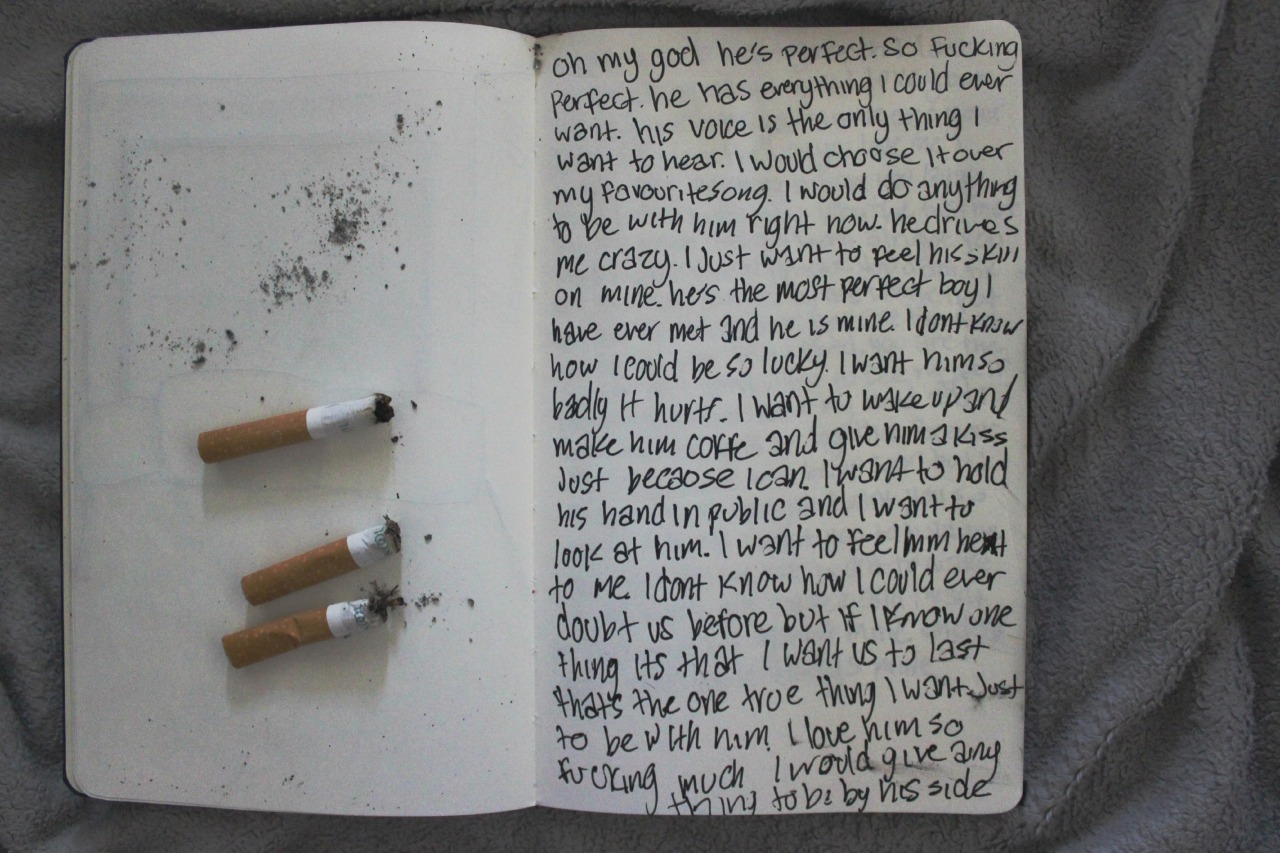 oh my god he's perfect. So fucking
perfect. he has everything I could ever
want. his voice is the only thing I
want to hear. I would choose it over
my favourite song. I would do anything
to be with him right now. he drives
me crazy. I Just want to feel his skin
on mine. he's the most perfect boy I
have ever met and he is mine. I dont know
how I could be so lucky. I want him so
badly it hurts. I want to wake up and
make him coffe and give him a kiss
Just because I can. I want to hold
his hand in public and I want to
look at him. I want to feel him next
to me. I dont know how I could ever
doubt us before but if I know one
thing its that I want us to last
that's the one true thing I want. Just
to be with him. I love him so
fucking much I would give any
thing to be by his side